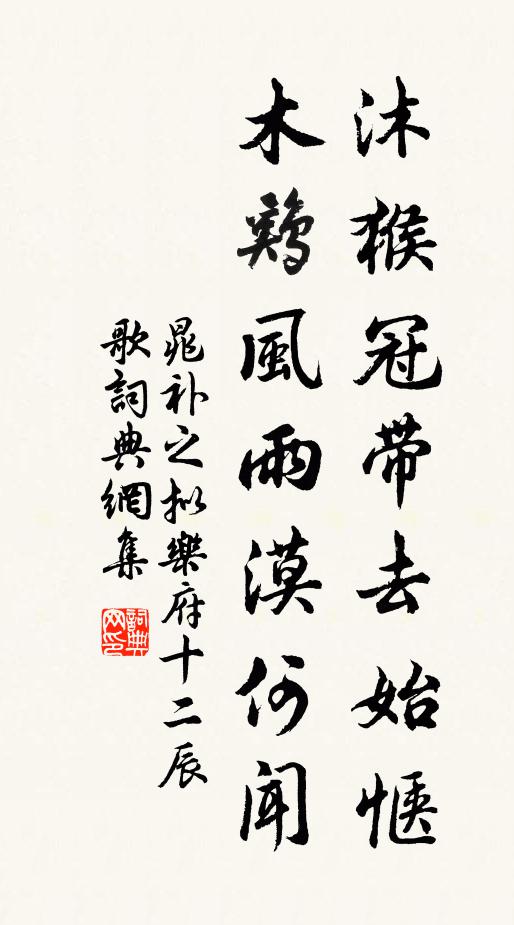 沐猴冠带去始惬
木鷄風雨漠何聞
晁补之拟樂府十二辰
歌詞典網集
詞典网印